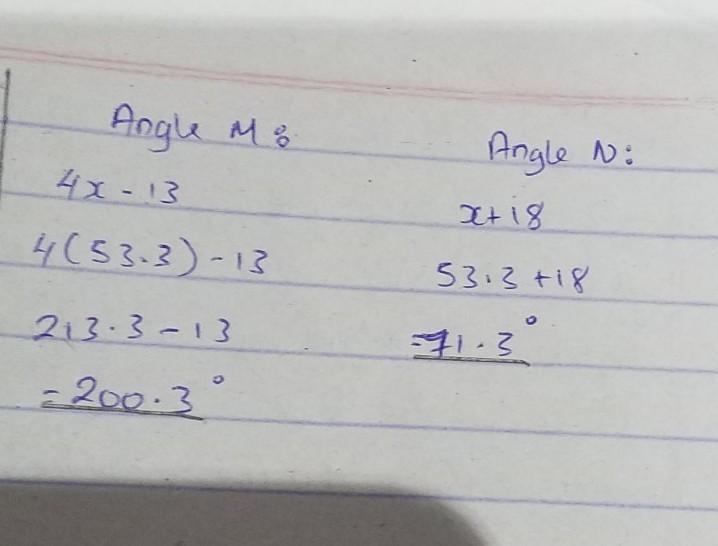 Angle M:
4x - 13
4(53.3) - 13
213.3 - 13
= 200.3°
Angle N:
x + 18
53.3 + 18
= 71.3°